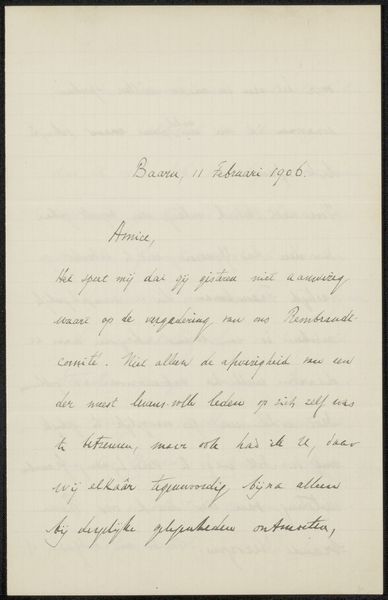 Baarn, 11 Februari 1906.
Amice,
Het spert mij dat gij gisteren niet aanwezig
waart op de vergadering van ons Rembrandt-
comité. Niet alleen de afwezigheid van een
der meest levens volle leden op zich zelf was
te betreuren, maar ook had ik U, daar
wij elkaâr tegenwoordig bijna alleen
bij dergelijke gelegenheden ontmoeten,